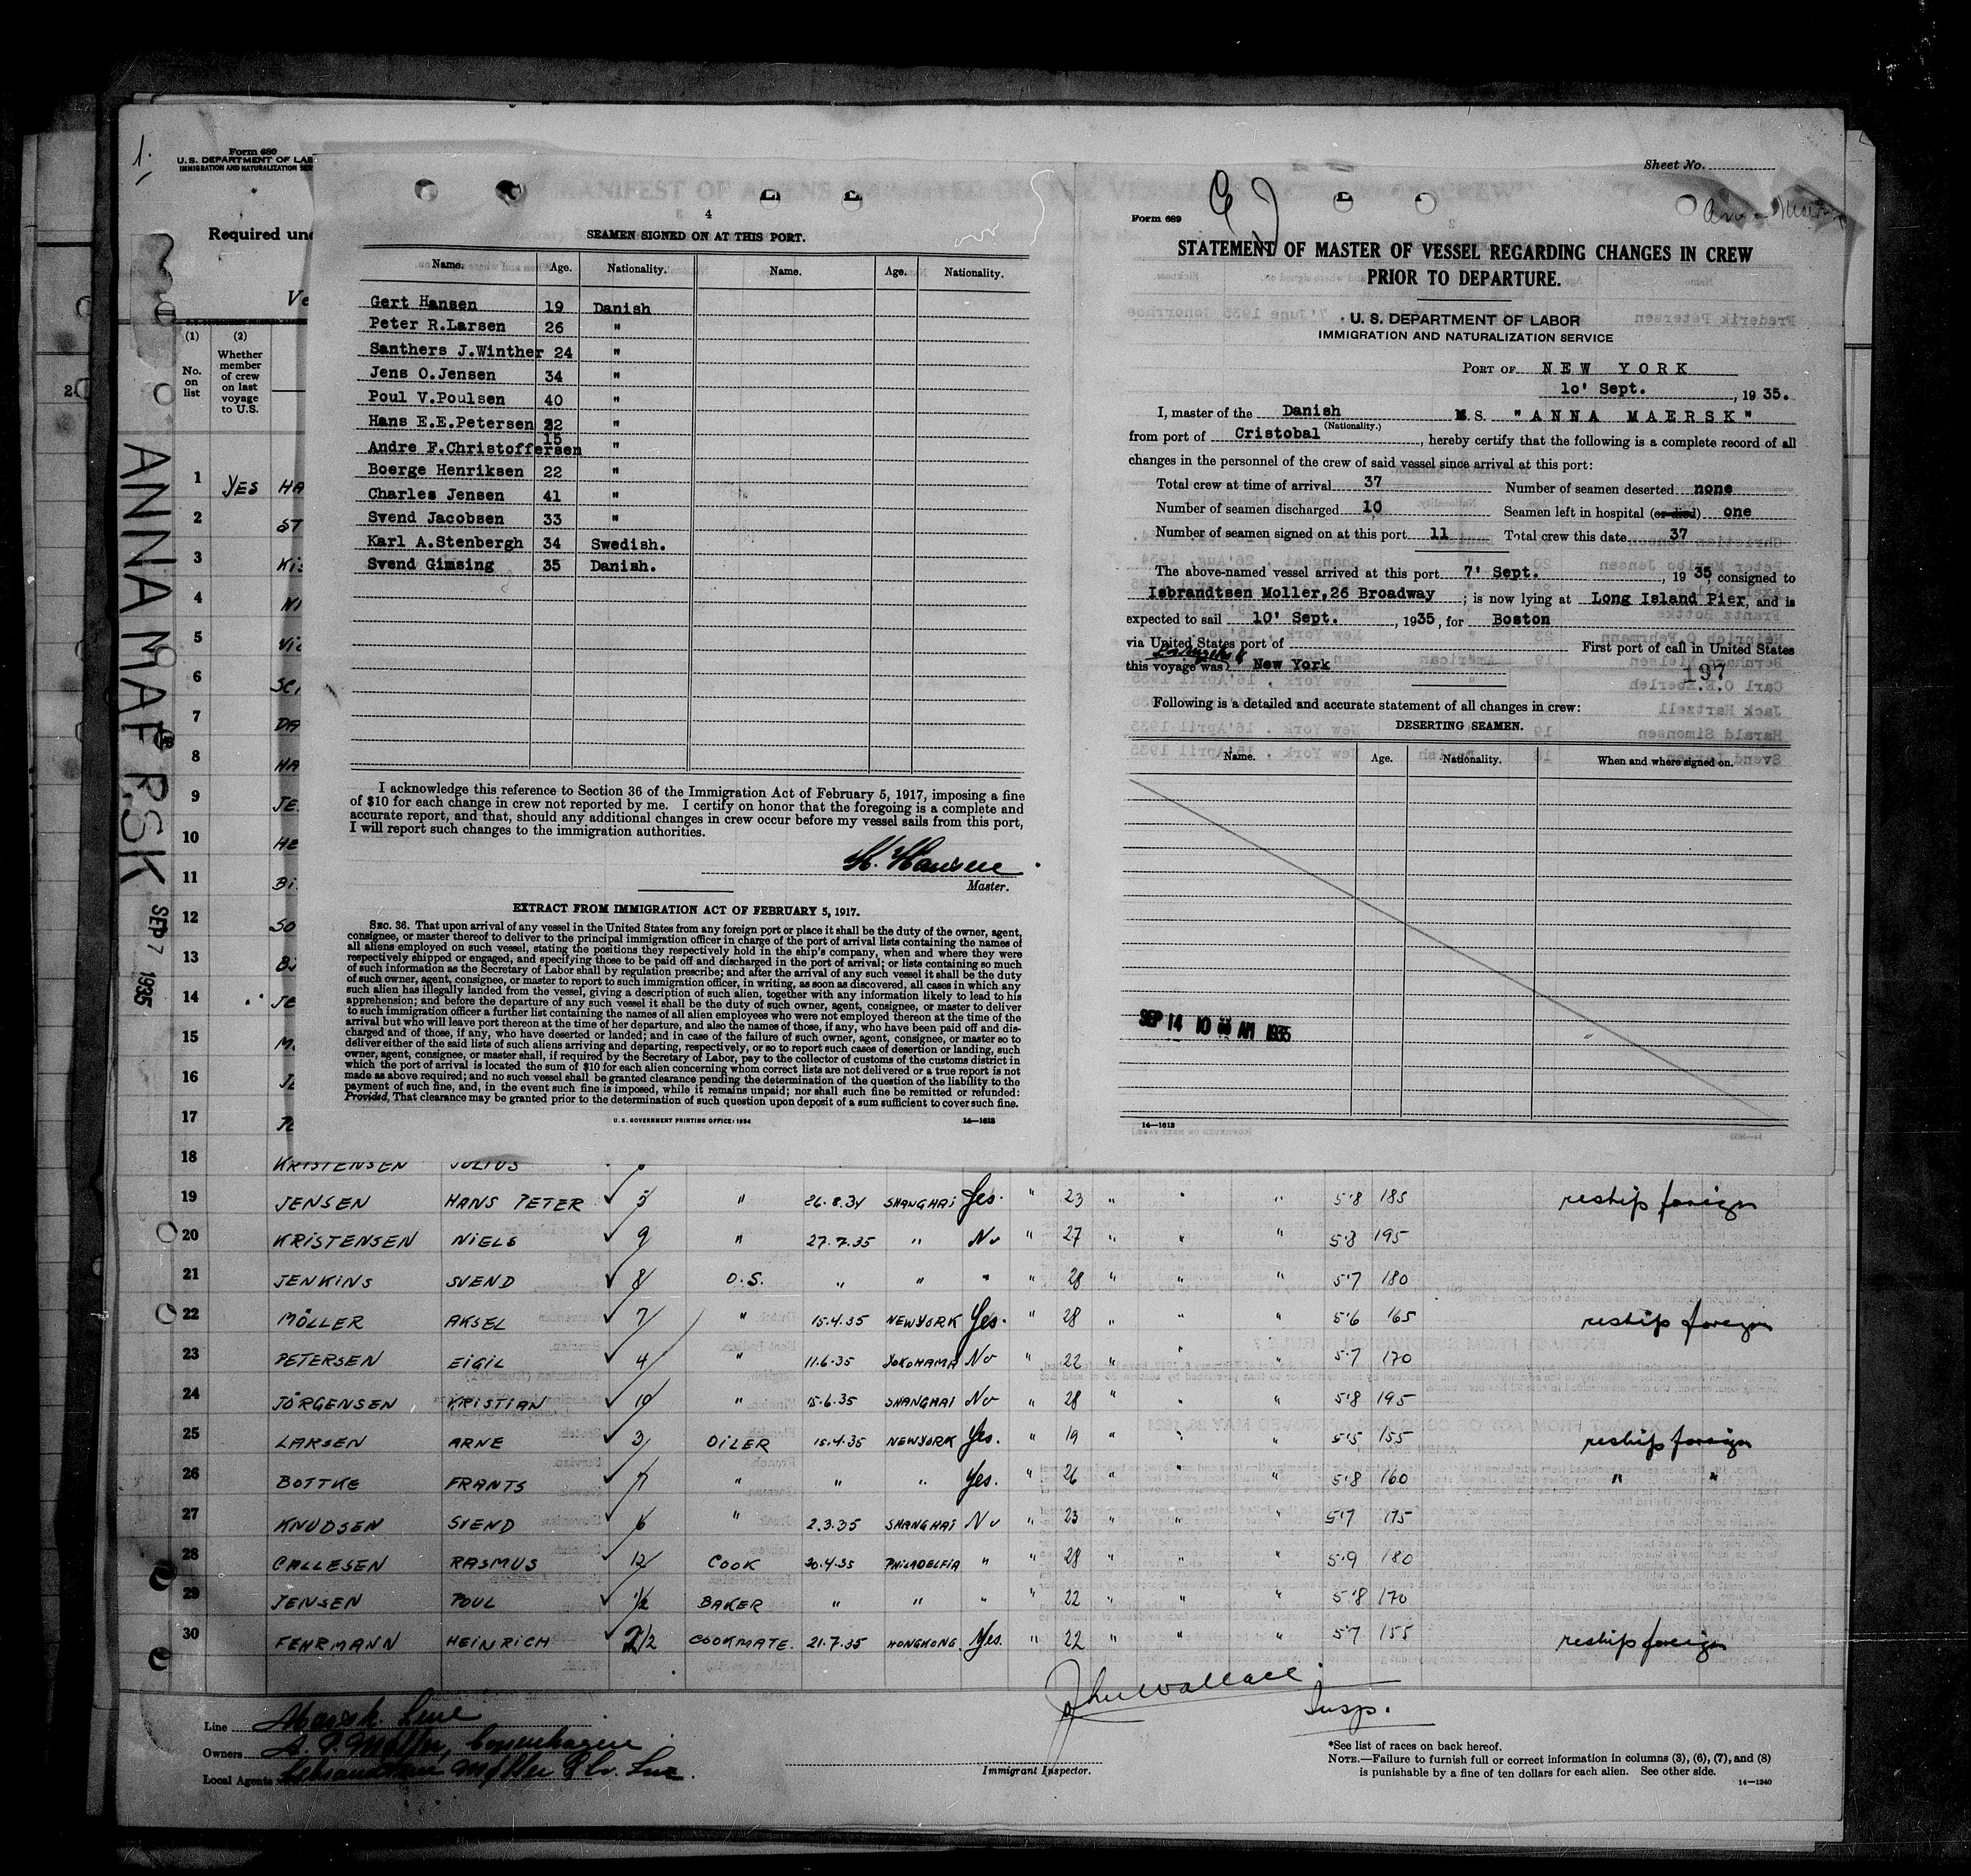 1.
Form 680
U. S. DEPARTMENT OF LAB
IMMIGRATION AND NATURALIZATION SER
Required und
Ve
Sheet No.
ANNA MAERSK
SEP 7 1935
(1)
No. on list
(2)
Whether member of crew on last voyage to U.S.
4
SEAMEN SIGNED ON AT THIS PORT.
Name. Age. Nationality. Name. Age. Nationality.
Gert Hansen 19 Danish
Peter R.Larsen 26 "
Santhers J.Winther 24 "
Jens O.Jensen 34 "
Poul V.Poulsen 40 "
Hans E.E.Petersen 22 "
Andre F.Christoffersen 15 "
Boerge Henriksen 22 "
Charles Jensen 41 "
Svend Jacobsen 33 "
Karl A.Stenbergh 34 Swedish.
Svend Gimsing 35 Danish.
I acknowledge this reference to Section 36 of the Immigration Act of February 5, 1917, imposing a fine
of $10 for each change in crew not reported by me. I certify on honor that the foregoing is a complete and
accurate report, and that, should any additional changes in crew occur before my vessel sails from this port,
I will report such changes to the immigration authorities.
H. Hansen
Master.
EXTRACT FROM IMMIGRATION ACT OF FEBRUARY 5, 1917.
SEC. 36. That upon arrival of any vessel in the United States from any foreign port or place it shall be the duty of the owner, agent,
consignee, or master thereof to deliver to the principal immigration officer in charge of the port of arrival lists containing the names of
all aliens employed on such vessel, stating the positions they respectively hold in the ship's company, when and where they were
respectively shipped or engaged, and specifying those to be paid off and discharged in the port of arrival; or lists containing so much
of such information as the Secretary of Labor shall by regulation prescribe; and after the arrival of any such vessel it shall be the duty
of such owner, agent, consignee, or master to report to such immigration officer, in writing, as soon as discovered, all cases in which any
such alien has illegally landed from the vessel, giving a description of such alien, together with any information likely to lead to his
apprehension; and before the departure of any such vessel it shall be the duty of such owner, agent, consignee, or master to deliver
to such immigration officer a further list containing the names of all alien employees who were not employed thereon at the time of the
arrival but who will leave port thereon at the time of her departure, and also the names of those, if any, who have been paid off and dis-
charged and of those, if any, who have deserted or landed; and in case of the failure of such owner, agent, consignee, or master so to
deliver either of the said lists of such aliens arriving and departing, respectively, or so to report such cases of desertion or landing, such
owner, agent, consignee, or master shall, if required by the Secretary of Labor, pay to the collector of customs of the customs district in
which the port of arrival is located the sum of $10 for each alien concerning whom correct lists are not delivered or a true report is not
made as above required; and no such vessel shall be granted clearance pending the determination of the question of the liability to the
payment of such fine, and, in the event such fine is imposed, while it remains unpaid; nor shall such fine be remitted or refunded:
Provided, That clearance may be granted prior to the determination of such question upon deposit of a sum sufficient to cover such fine.
U. S. GOVERNMENT PRINTING OFFICE: 1934 14—1613
Form 689
STATEMENT OF MASTER OF VESSEL REGARDING CHANGES IN CREW
PRIOR TO DEPARTURE.
U. S. DEPARTMENT OF LABOR
IMMIGRATION AND NATURALIZATION SERVICE
PORT OF NEW YORK
10' Sept. , 19 35.
I, master of the Danish M.S. "ANNA MAERSK"
(Nationality.)
from port of Cristobal , hereby certify that the following is a complete record of all
changes in the personnel of the crew of said vessel since arrival at this port:
Total crew at time of arrival 37 Number of seamen deserted none
Number of seamen discharged 10 Seamen left in hospital (or died) one
Number of seamen signed on at this port 11 Total crew this date 37
The above-named vessel arrived at this port 7' Sept. , 19 35, consigned to
Isbrandtsen Moller,26 Broadway ; is now lying at Long Island Pier, and is
expected to sail 10' Sept. , 1935, for Boston
via United States port of First port of call in United States
this voyage was New York
197
Following is a detailed and accurate statement of all changes in crew:
DESERTING SEAMEN.
Name. Age. Nationality. When and where signed on.
SEP 14 10 AM 1935
14—1613
1 YES HA
2 ST
3 Kis
4 Ni
5 Vic
6 SC
7 DA
8 HA
9 JE
10 HE
11 Bi
12 SO
13 Bi
14 JE
15 M
16 JE
17
18 KRISTENSEN JULIUS
19 JENSEN HANS PETER ✓ 5 " 26.8.34 SHANGHAI Yes. " 23 " " " 5'8 185 reship foreign
20 KRISTENSEN NIELS ✓ 9 " 27.7.35 " No " 27 " " " 5'8 195
21 JENKINS SVEND ✓ 8 O.S. " " " " 28 " " " 5'7 180
22 MÖLLER AKSEL ✓ 7 " 15.4.35 NEWYORK Yes. " 28 " " " 5'6 165 reship foreign
23 PETERSEN EIGIL ✓ 4 " 11.6.35 YOKOHAMA No " 22 " " " 5'7 170
24 JÖRGENSEN KRISTIAN ✓ 10 " 15.6.35 SHANGHAI No " 28 " " " 5'8 195
25 LARSEN ARNE ✓ 3 OILER 15.4.35 NEWYORK Yes. " 19 " " " 5'5 155 reship foreign
26 BOTTKE FRANTS ✓ 7 " " " Yes. " 26 " " " 5'8 160 " "
27 KNUDSEN SVEND ✓ 6 " 2.3.35 SHANGHAI No " 23 " " " 5'7 175
28 CALLESEN RASMUS ✓ 12 COOK 20.4.35 PHILADELFIA " " 28 " " " 5'9 180
29 JENSEN POUL ✓ 1/2 BAKER " " " " 22 " " " 5'8 170
30 FEHRMANN HEINRICH ✓ 2 1/2 COOKMATE. 21.7.35 HONGKONG. Yes. " 22 " " " 5'7 155 reship foreign
John Wallace
Insp.
Line Maersk Line
Owners A. P. Møller, Copenhagen
Local Agents Isbrandtsen Møller & Co. Inc.
Immigrant Inspector.
*See list of races on back hereof.
NOTE.—Failure to furnish full or correct information in columns (3), (6), (7), and (8)
is punishable by a fine of ten dollars for each alien. See other side.
14—1240